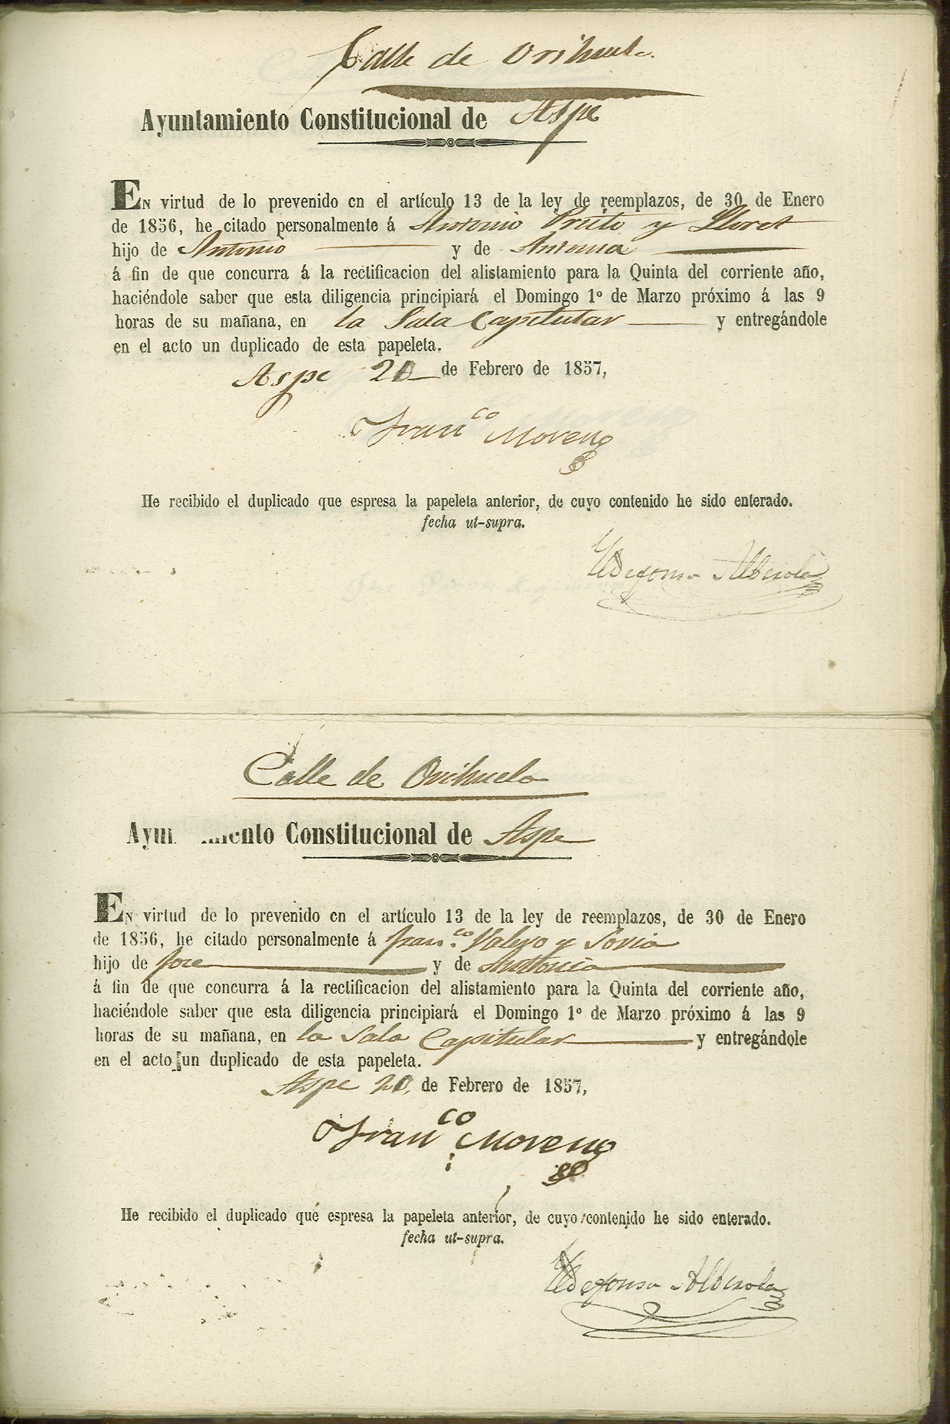 Calle de Orihuela.
Ayuntamiento Constitucional de Aspe
En virtud de lo prevenido en el artículo 13 de la ley de reemplazos, de 30 de Enero
de 1856, he citado personalmente á Antonio Prieto y Lloret
hijo de Antonio y de Antonia
á fin de que concurra á la rectificacion del alistamiento para la Quinta del corriente año,
haciéndole saber que esta diligencia principiará el Domingo 1º de Marzo próximo á las 9
horas de su mañana, en la Sala Capitular y entregándole
en el acto un duplicado de esta papeleta.
Aspe 20 de Febrero de 1857,
Franco Moreno
He recibido el duplicado que espresa la papeleta anterior, de cuyo contenido he sido enterado.
fecha ut-supra.
Ildefonso Alberola
Calle de Orihuela
Ayun miento Constitucional de Aspe
En virtud de lo prevenido en el artículo 13 de la ley de reemplazos, de 30 de Enero
de 1856, he citado personalmente á Franco Valero y Soria
hijo de Jose y de Antonia
á fin de que concurra á la rectificacion del alistamiento para la Quinta del corriente año,
haciéndole saber que esta diligencia principiará el Domingo 1º de Marzo próximo á las 9
horas de su mañana, en la Sala Capitular y entregándole
en el acto un duplicado de esta papeleta.
Aspe 20 de Febrero de 1857,
Franco Moreno
He recibido el duplicado que espresa la papeleta anterior, de cuyo contenido he sido enterado.
fecha ut-supra.
Ildefonso Alberola